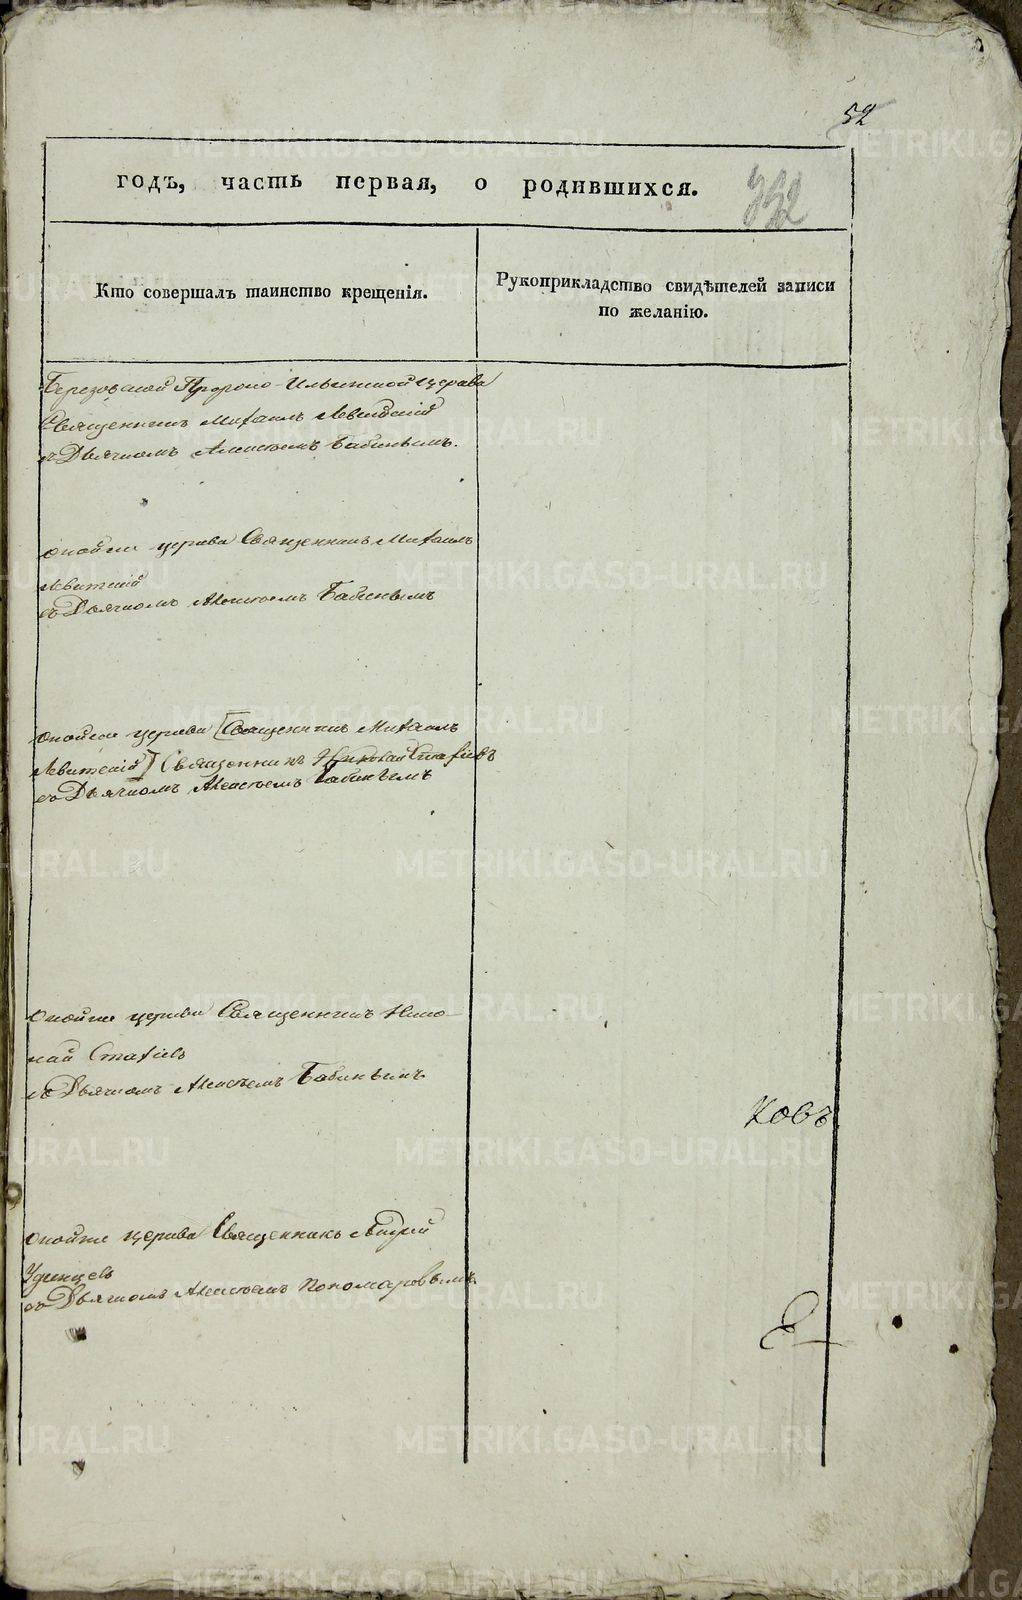 52
годъ, часть первая, о родившихся.
352
Кто совершалъ таинство крещенія.
Рукоприкладство свидѣтелей записи
по желанію.
Березовской Пророко-Ильинской церкви
Священникъ Михаилъ Левитскій
съ Дьячкомъ Алексѣемъ Бабинымъ.
оной же церкви Священникъ Михаилъ
Левитскій
съ Дьячкомъ Алексѣемъ Бабинымъ
оной же церкви [Священникъ Михаилъ
Левитскій] Священникъ Николай Стафіевъ
съ Дьячкомъ Алексѣемъ Бабинымъ
оной же церкви Священникъ Нико-
лай Стафіевъ
съ Дьячкомъ Алексѣемъ Бабинымъ
ковъ
оной же церкви Священникъ Андрей
Удинцевъ
съ Дьячкомъ Алексѣемъ Пономаревымъ
METRIKI.GASO-URAL.RU